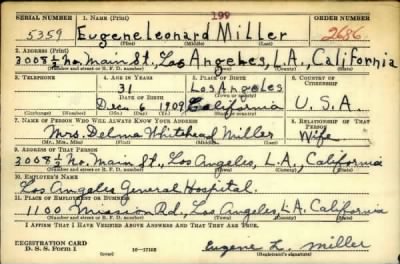 SERIAL NUMBER 1. NAME (Print) 199 ORDER NUMBER
5359 Eugene Leonard Miller 2686
(First) (Middle) (Last)
2. ADDRESS (Print)
3008½ No. Main St., Los Angeles, L.A., California
(Number and street or R. F. D. number) (Town) (County) (State)
3. TELEPHONE 4. AGE IN YEARS 5. PLACE OF BIRTH 6. COUNTRY OF CITIZENSHIP
31 Los Angeles
DATE OF BIRTH (Town or county)
Dec 1909 California U.S.A.
(Mo.) (Day) (Yr.) (State or country)
7. NAME OF PERSON WHO WILL ALWAYS KNOW YOUR ADDRESS 8. RELATIONSHIP OF THAT PERSON
Mrs. Delma Whitehead Miller Wife
(Mr., Mrs., Miss) (First) (Middle) (Last)
9. ADDRESS OF THAT PERSON
3008½ No. Main St., Los Angeles, L.A., California
(Number and street or R. F. D. number) (Town) (County) (State)
10. EMPLOYER'S NAME
Los Angeles General Hospital.
11. PLACE OF EMPLOYMENT OR BUSINESS
1100 Mission Rd., Los Angeles, L.A. California
(Number and street or R. F. D. number) (Town) (County) (State)
I AFFIRM THAT I HAVE VERIFIED ABOVE ANSWERS AND THAT THEY ARE TRUE.
REGISTRATION CARD
D. S. S. Form 1 16—17105 Eugene L. Miller
(Registrant's signature)